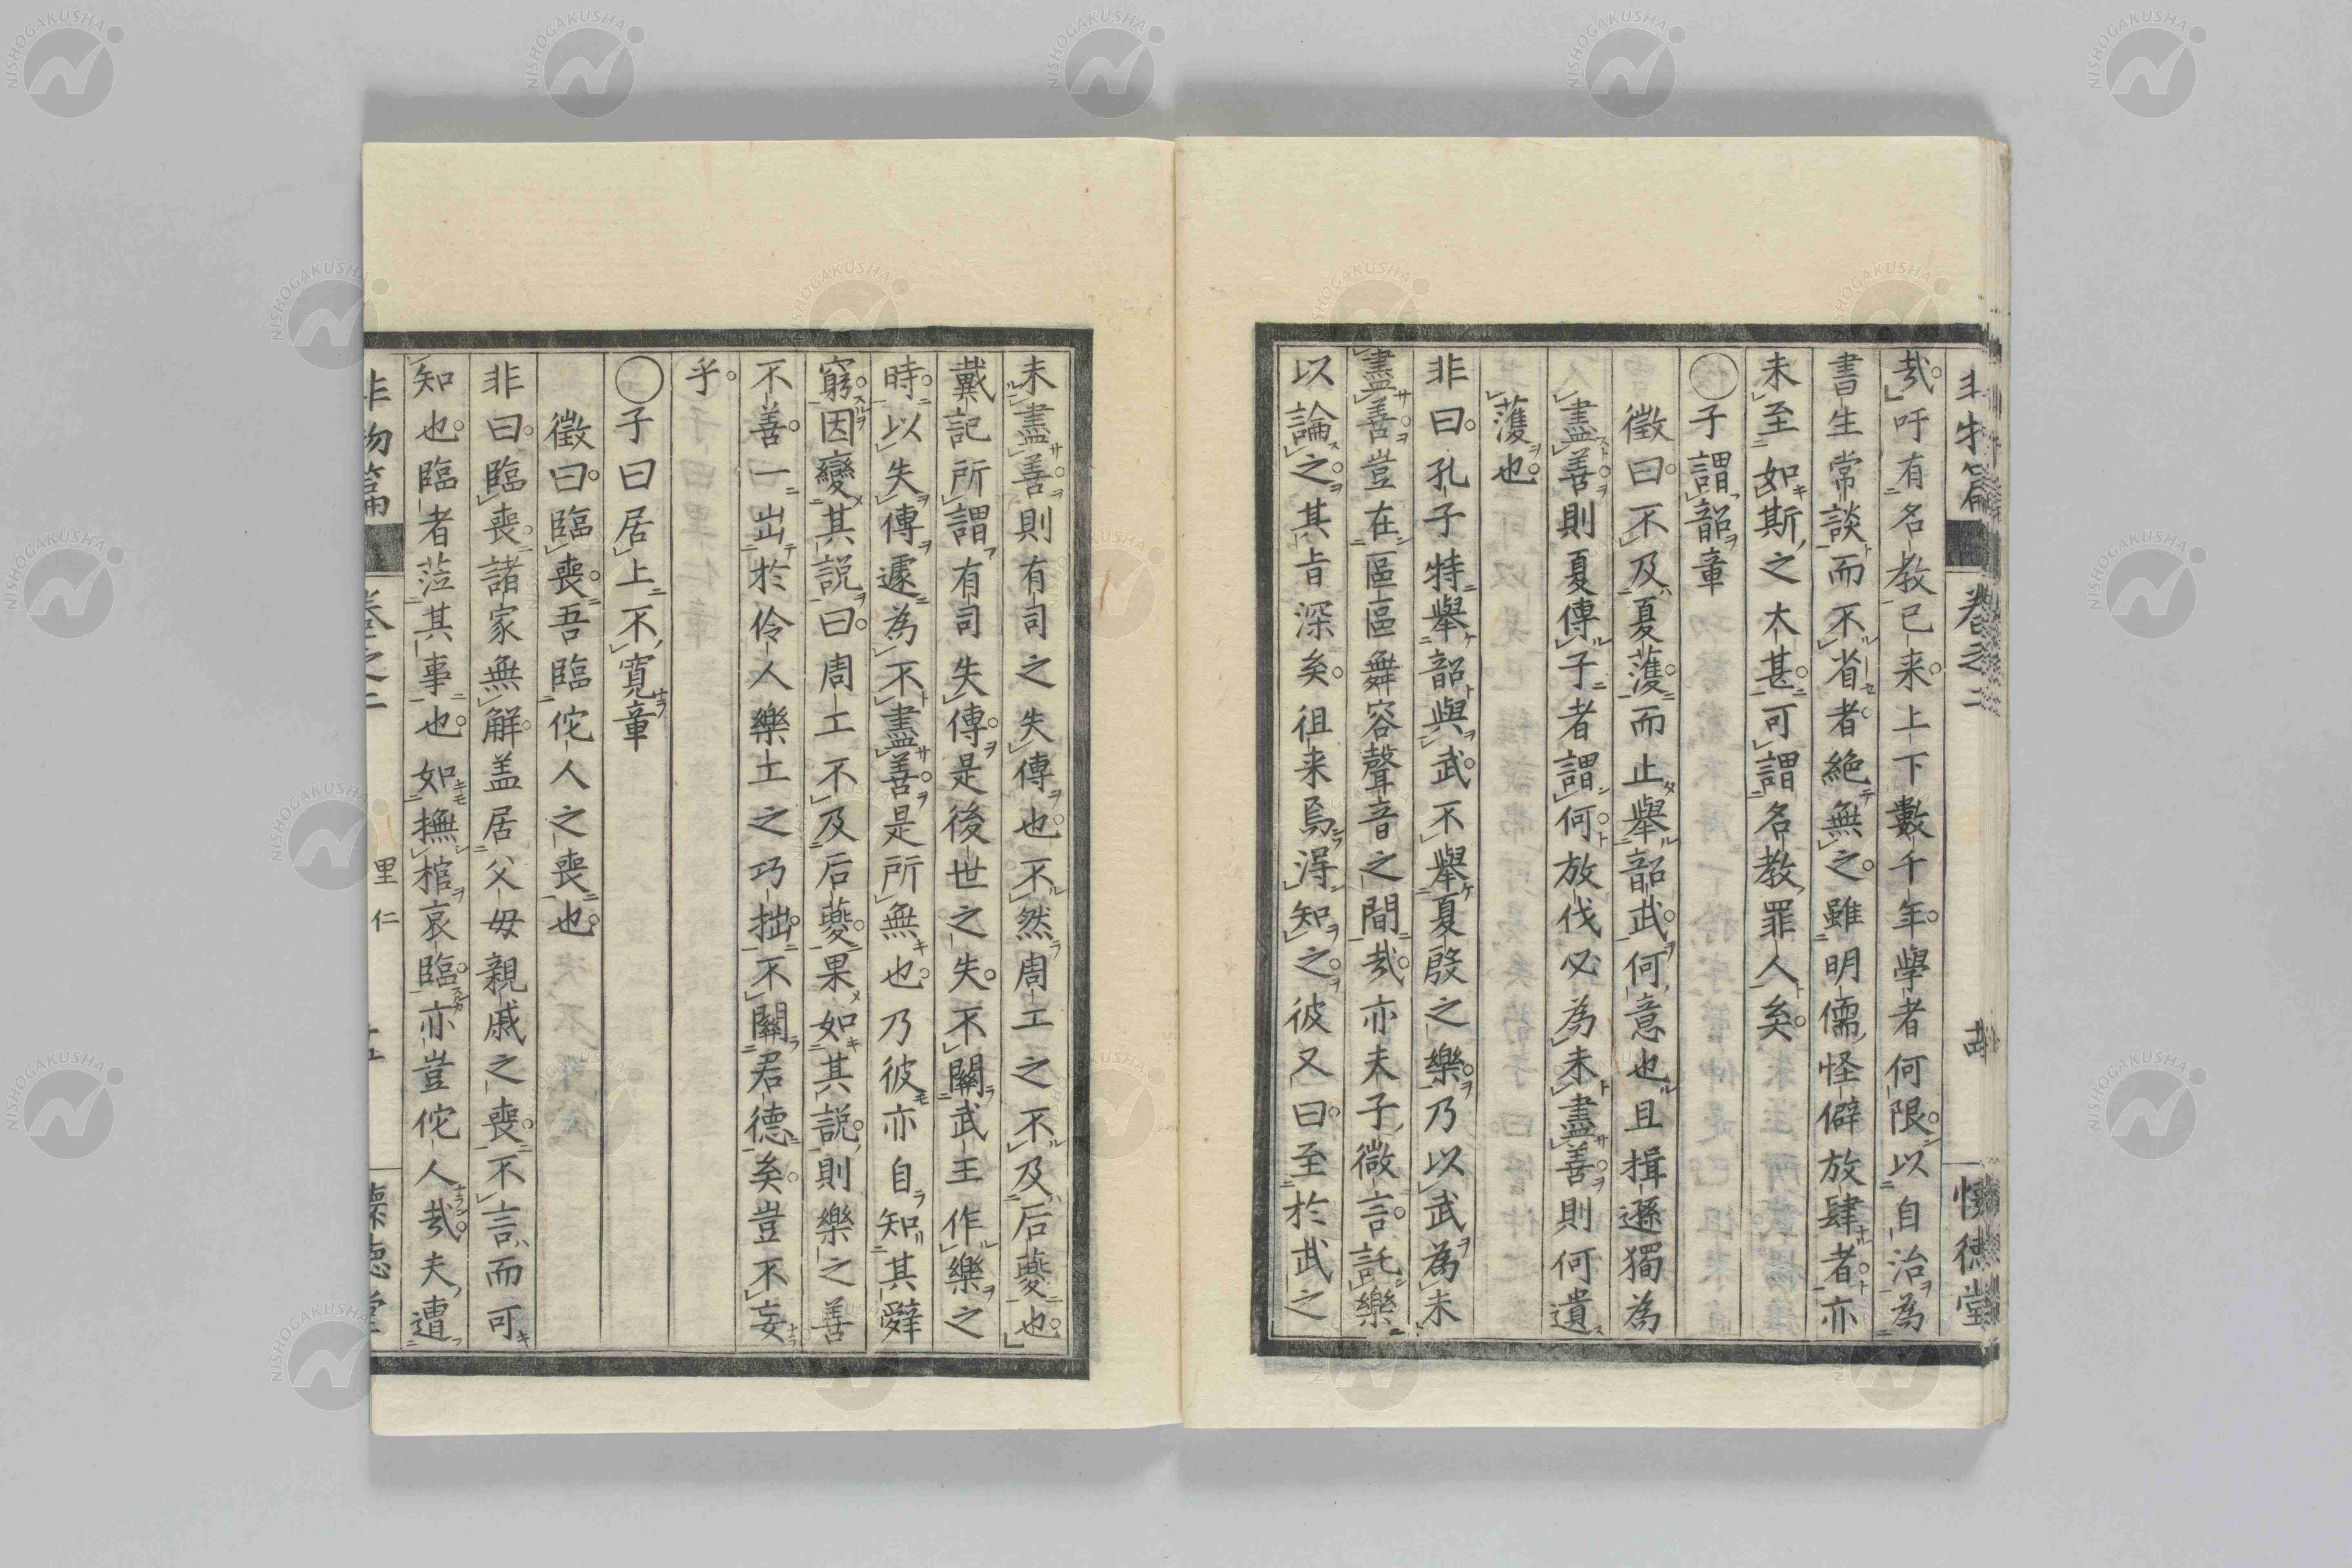 哉。吁有名教已来。上下數千年。學者何限。以自治為
書生常談而不省者。絶無之。雖明儒怪僻放肆者。亦
未至如斯之大甚。可謂名教罪人矣。
〇子謂韶章
徵曰。不及夏濩。而止舉韶武。何意也。且揖遜獨為
盡善。則夏傳子者謂何。放伐必為未盡善。則何遺
濩也。
非曰。孔子特舉韶與武。不舉夏殷之樂。乃以武為未
盡善。豈在區區舞容聲音之間哉。亦夫子微言。託樂
以論之。其旨深矣。徂来烏得知之。彼又曰。至於武之
未盡善。則有司之失傳也。不然周工之不及后夔也。
戴記所謂有司失傳。是後世之失。不關武王作樂之
時。以失傳遽為不盡善。是所無也。乃彼亦自知其辭
窮。因變其説曰。周工不及后夔。果如其説。則樂之善
不善。一出於伶人樂工之巧拙。不關君德矣。豈不妄
乎。
〇子曰居上不寛章
徵曰。臨喪。吾臨佗人之喪也。
非曰。臨喪。諸家無解。盖居父母親戚之喪。不言而可
知也。臨者蒞其事也。如撫棺哀臨。亦豈佗人哉。夫遭
非物篇
卷之二
里仁
懷德堂